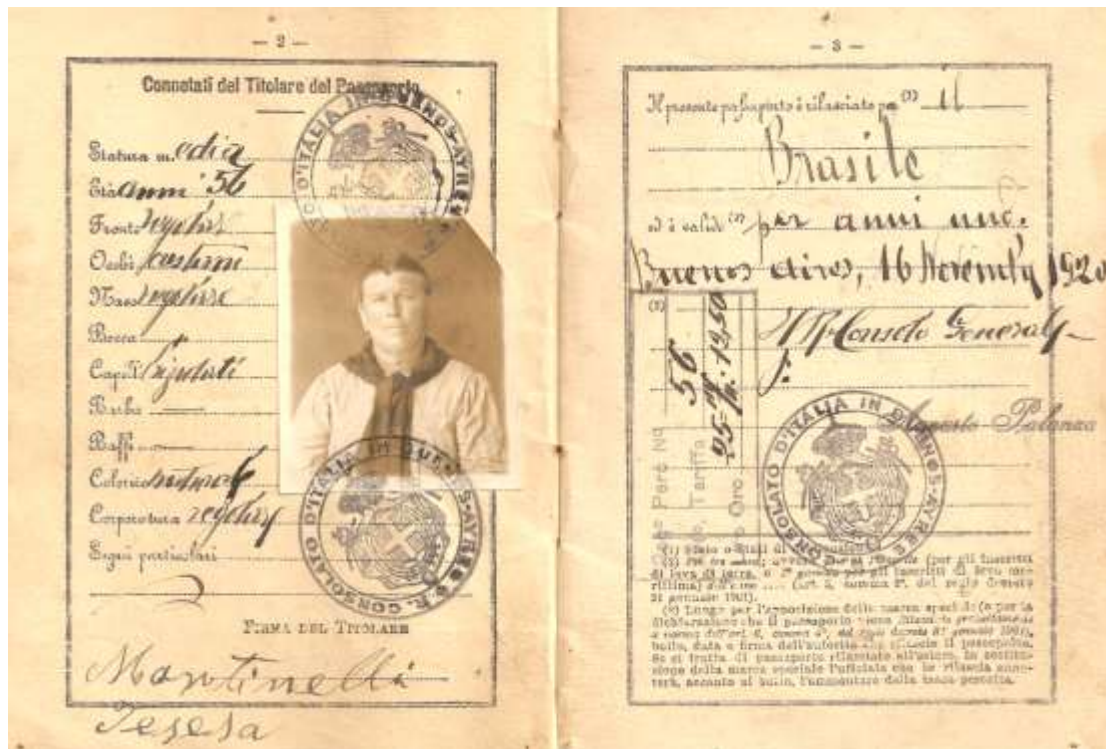 — 2 —
Connotati del Titolare del Passaporto
Statura media
Età anni 56
Fronte regolare
Occhi castani
Naso regolare
Bocca
Capelli brizolati
Barba —
Baffi —
Colorito naturale
Corporatura regolare
Segni particolari
FIRMA DEL TITOLARE
Martinelli
Teresa
R. CONSOLATO D'ITALIA IN BUENOS-AYRES
R. CONSOLATO D'ITALIA IN BUENOS-AYRES
— 3 —
Il presente passaporto è rilasciato per (1) il
Brasile
ed è valido (2) per anni uno.
Buenos Aires, 16 1920
(3)
Console Generale
Palanza
56
Tariffa 25
Oro. 12,50
CONSOLATO D'ITALIA IN BUENOS-AYRES
(1) Stato o Stati di
(per gli inscritti
di leva di terra, o
31 gennaio 1901).
(3) Luogo per l'apposizione della marca speciale (o per la
dichiarazione che il passaporto viene rilasciato gratuitamente
a norma dell'art. 6, comma 4°, del regio decreto 31 gennaio 1901),
bollo, data e firma dell'autorità che rilascia il passaporto.
Se si tratta di passaporto rilasciato all'estero, in sostitu-
zione della marca speciale l'ufficiale che lo rilascia anno-
terà, accanto al bollo, l'ammontare della tassa percetta.